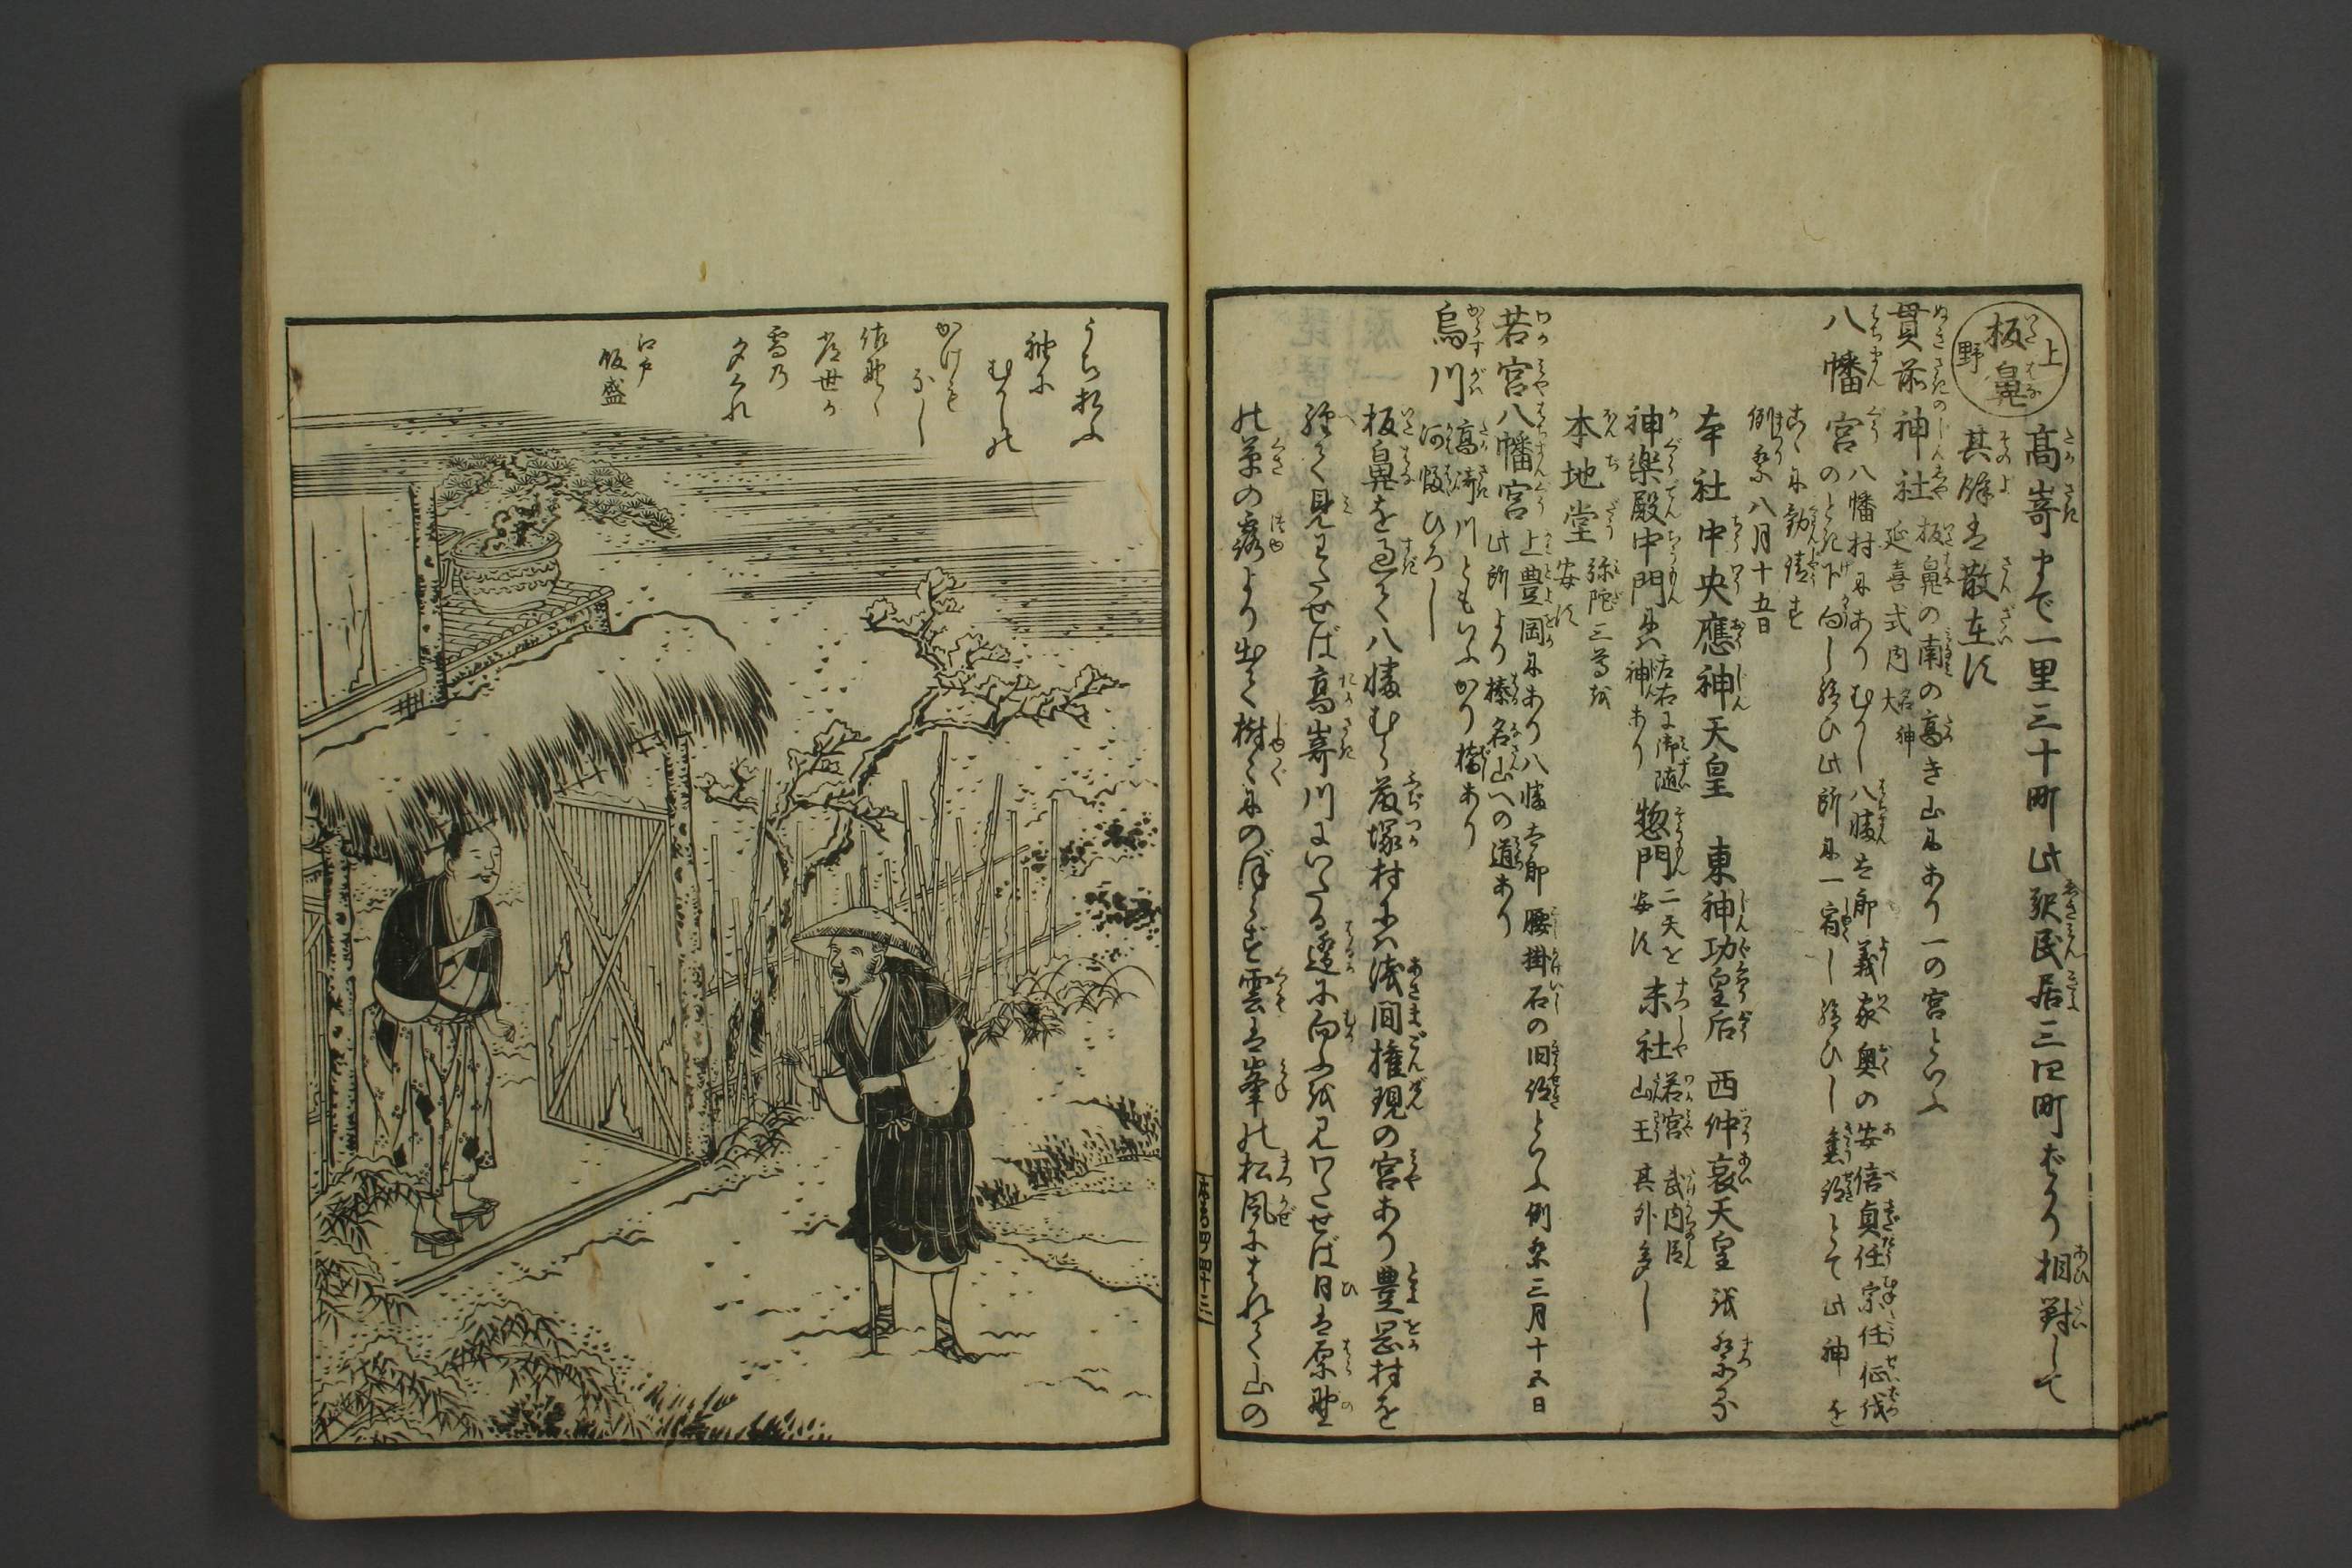 上野
板鼻
高崎まで一里三十町此駅民居三四町ばかり相対して
其餘は散在す
貫前神社 板鼻の南の高き山にあり一の宮といふ
延喜式内名神大
八幡宮 八幡村にありむかし八幡太郎義家奥の安倍貞任宗任征伐
のとき下向し給ひ此所に一宿し給ひし旧蹟とて此神を
こゝに勧請す
例祭八月十五日
本社中央應神天皇 東神功皇后 西仲哀天皇を祭る
神楽殿中門には左右に御随神あり 惣門二天を安す 末社若宮 武内臣 山王 其外多し
本地堂 弥陀三尊を安す
若宮八幡宮 上豊岡にあり八幡太郎腰掛石の旧跡といふ例祭三月十五日
此所より榛名山への道あり
烏川 高崎川ともいふかり橋あり
河原ひろし
板鼻を過て八幡むら藤塚村には浅間権現の宮あり豊岡村を
経て見わたせば高崎川にいたる遥に向ふを見わたせば日は原野
の草の露より出て樹々にのぼらず雲は峯の松風にはれて山の
うち払ふ
袖に
むかしの
かけも
なし
佐野ゝ
常世か
雪乃
夕くれ
江戸
飯盛